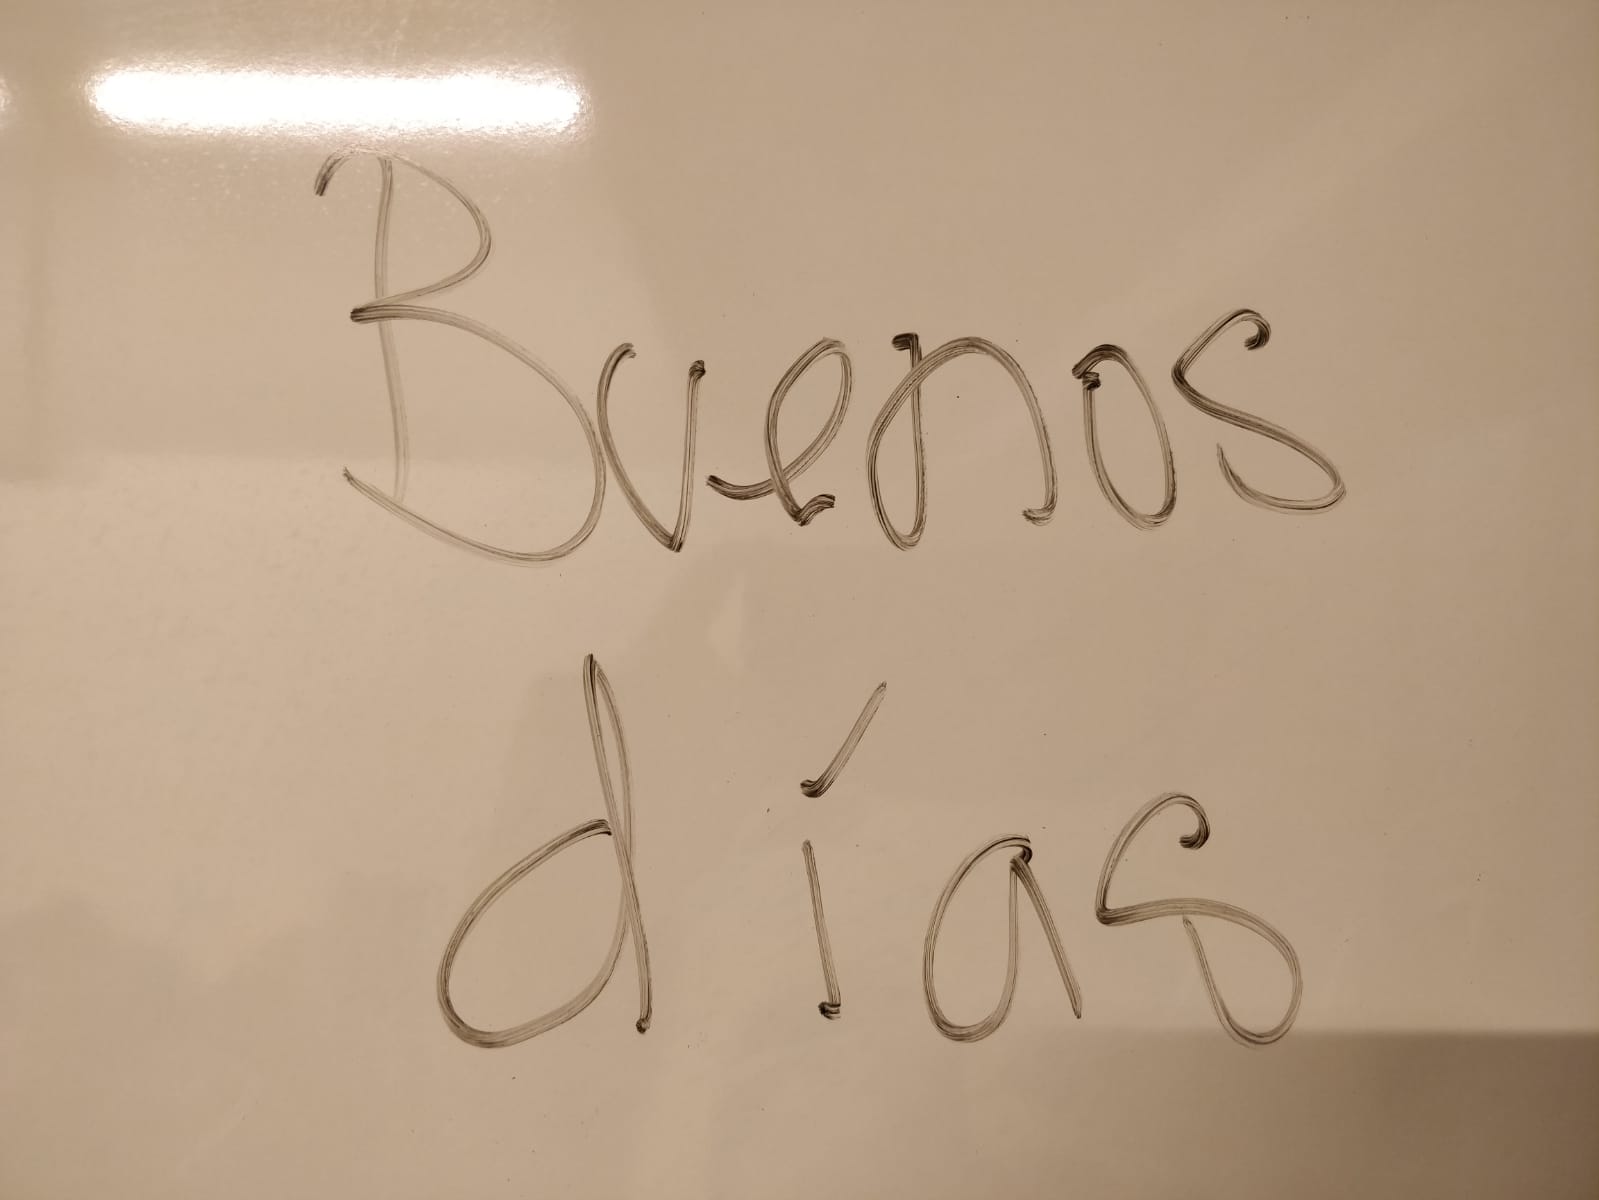 Buenos
días